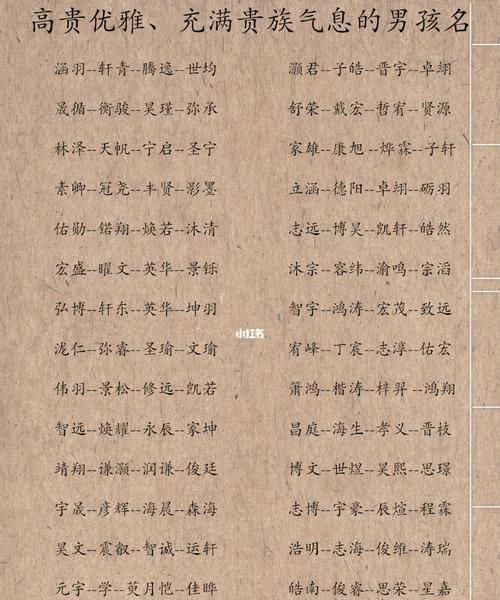 高贵优雅、充满贵族气息的男孩名
涵羽--轩青--腾逸--世均
晟循--衡骏--昊瑾--弥承
林泽--天帆--宁启--圣宁
素卿--冠尧--丰贤--影墨
佑勋--锘翔--焕若--沐清
宏盛--曜文--英华--景铄
弘博--轩东--英华--坤羽
泷仁--弥睿--圣瑜--文瑜
伟羽--景松--修远--凯若
智远--焕耀--永辰--家坤
靖翔--谦灏--润谦--俊廷
宇晟--彦辉--海晨--森海
昊文--震叡--智诚--运轩
元宇--学--萸月恺--佳晔
灏君--子皓--晋宇--卓翊
舒荣--戴宏--哲宥--贤源
家雄--康旭--烨霖--子轩
立涵--德阳--卓翊--砺羽
志远--博昊--凯轩--皓然
沐宗--容纬--渝鸣--宗滔
智宇--鸿涛--宏茂--致远
宥峰--丁宸--志淳--佑宏
萧鸿--楷涛--梓羿--鸿翔
昌庭--海生--孝义--晋枝
博文--世煜--昊熙--思璟
志博--宇豪--辰煊--程霖
浩明--志海--俊维--涛瑞
皓南--俊睿--思荣--星嘉
小红书